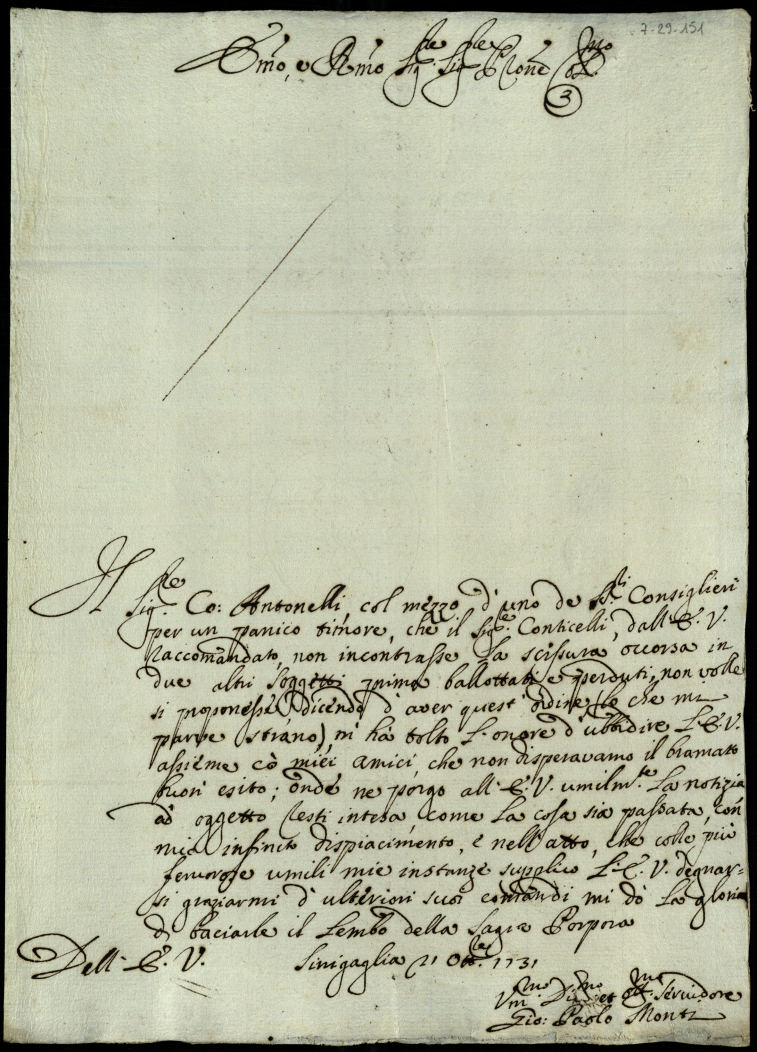 7-29-151
Em̃o, e Rm̃o Sig.re Sig.re P̃rone Col.mo
3
Il Sig.re Co: Antonelli, col mezzo d'uno de SS.ri Consiglieri
per un panico timore, che il Sig.re Conticelli, dall'E. V.
raccomandato, non incontrasse la scissura occorsa in
due altri soggetti prima ballottati, e perduti, non volle
si proponesse, dicendo d'aver quest'ordine (lo che mi
parve strano) m'ha tolto l'onore d'ubbidire l'E. V.
assieme cõ miei amici, che non disperavamo il bramato
buon esito; onde ne porgo all'E. V. umilm.te la notizia
ad oggetto resti intesa come la cosa sia passata, con
mio infinito dispiacimento, e nell'atto, che colle più
fervorose umili mie instanze supplico l'E. V. degnar=
si graziarmi d'ulteriori suoi comandi mi dò la gloria
di baciarle il lembo della Sagra Porpora
Dell'E. V. Sinigaglia 21 Ott.bre 1731
Um.mo Div.mo et Obl.mo Servidore
Gio: Paolo Monti